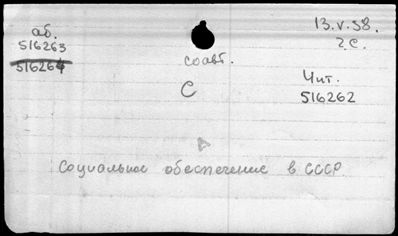 аб.
516263
516264
13.V.58.
2 с.
соавт.
С
Чит.
516262
Социальное обеспечение в СССР